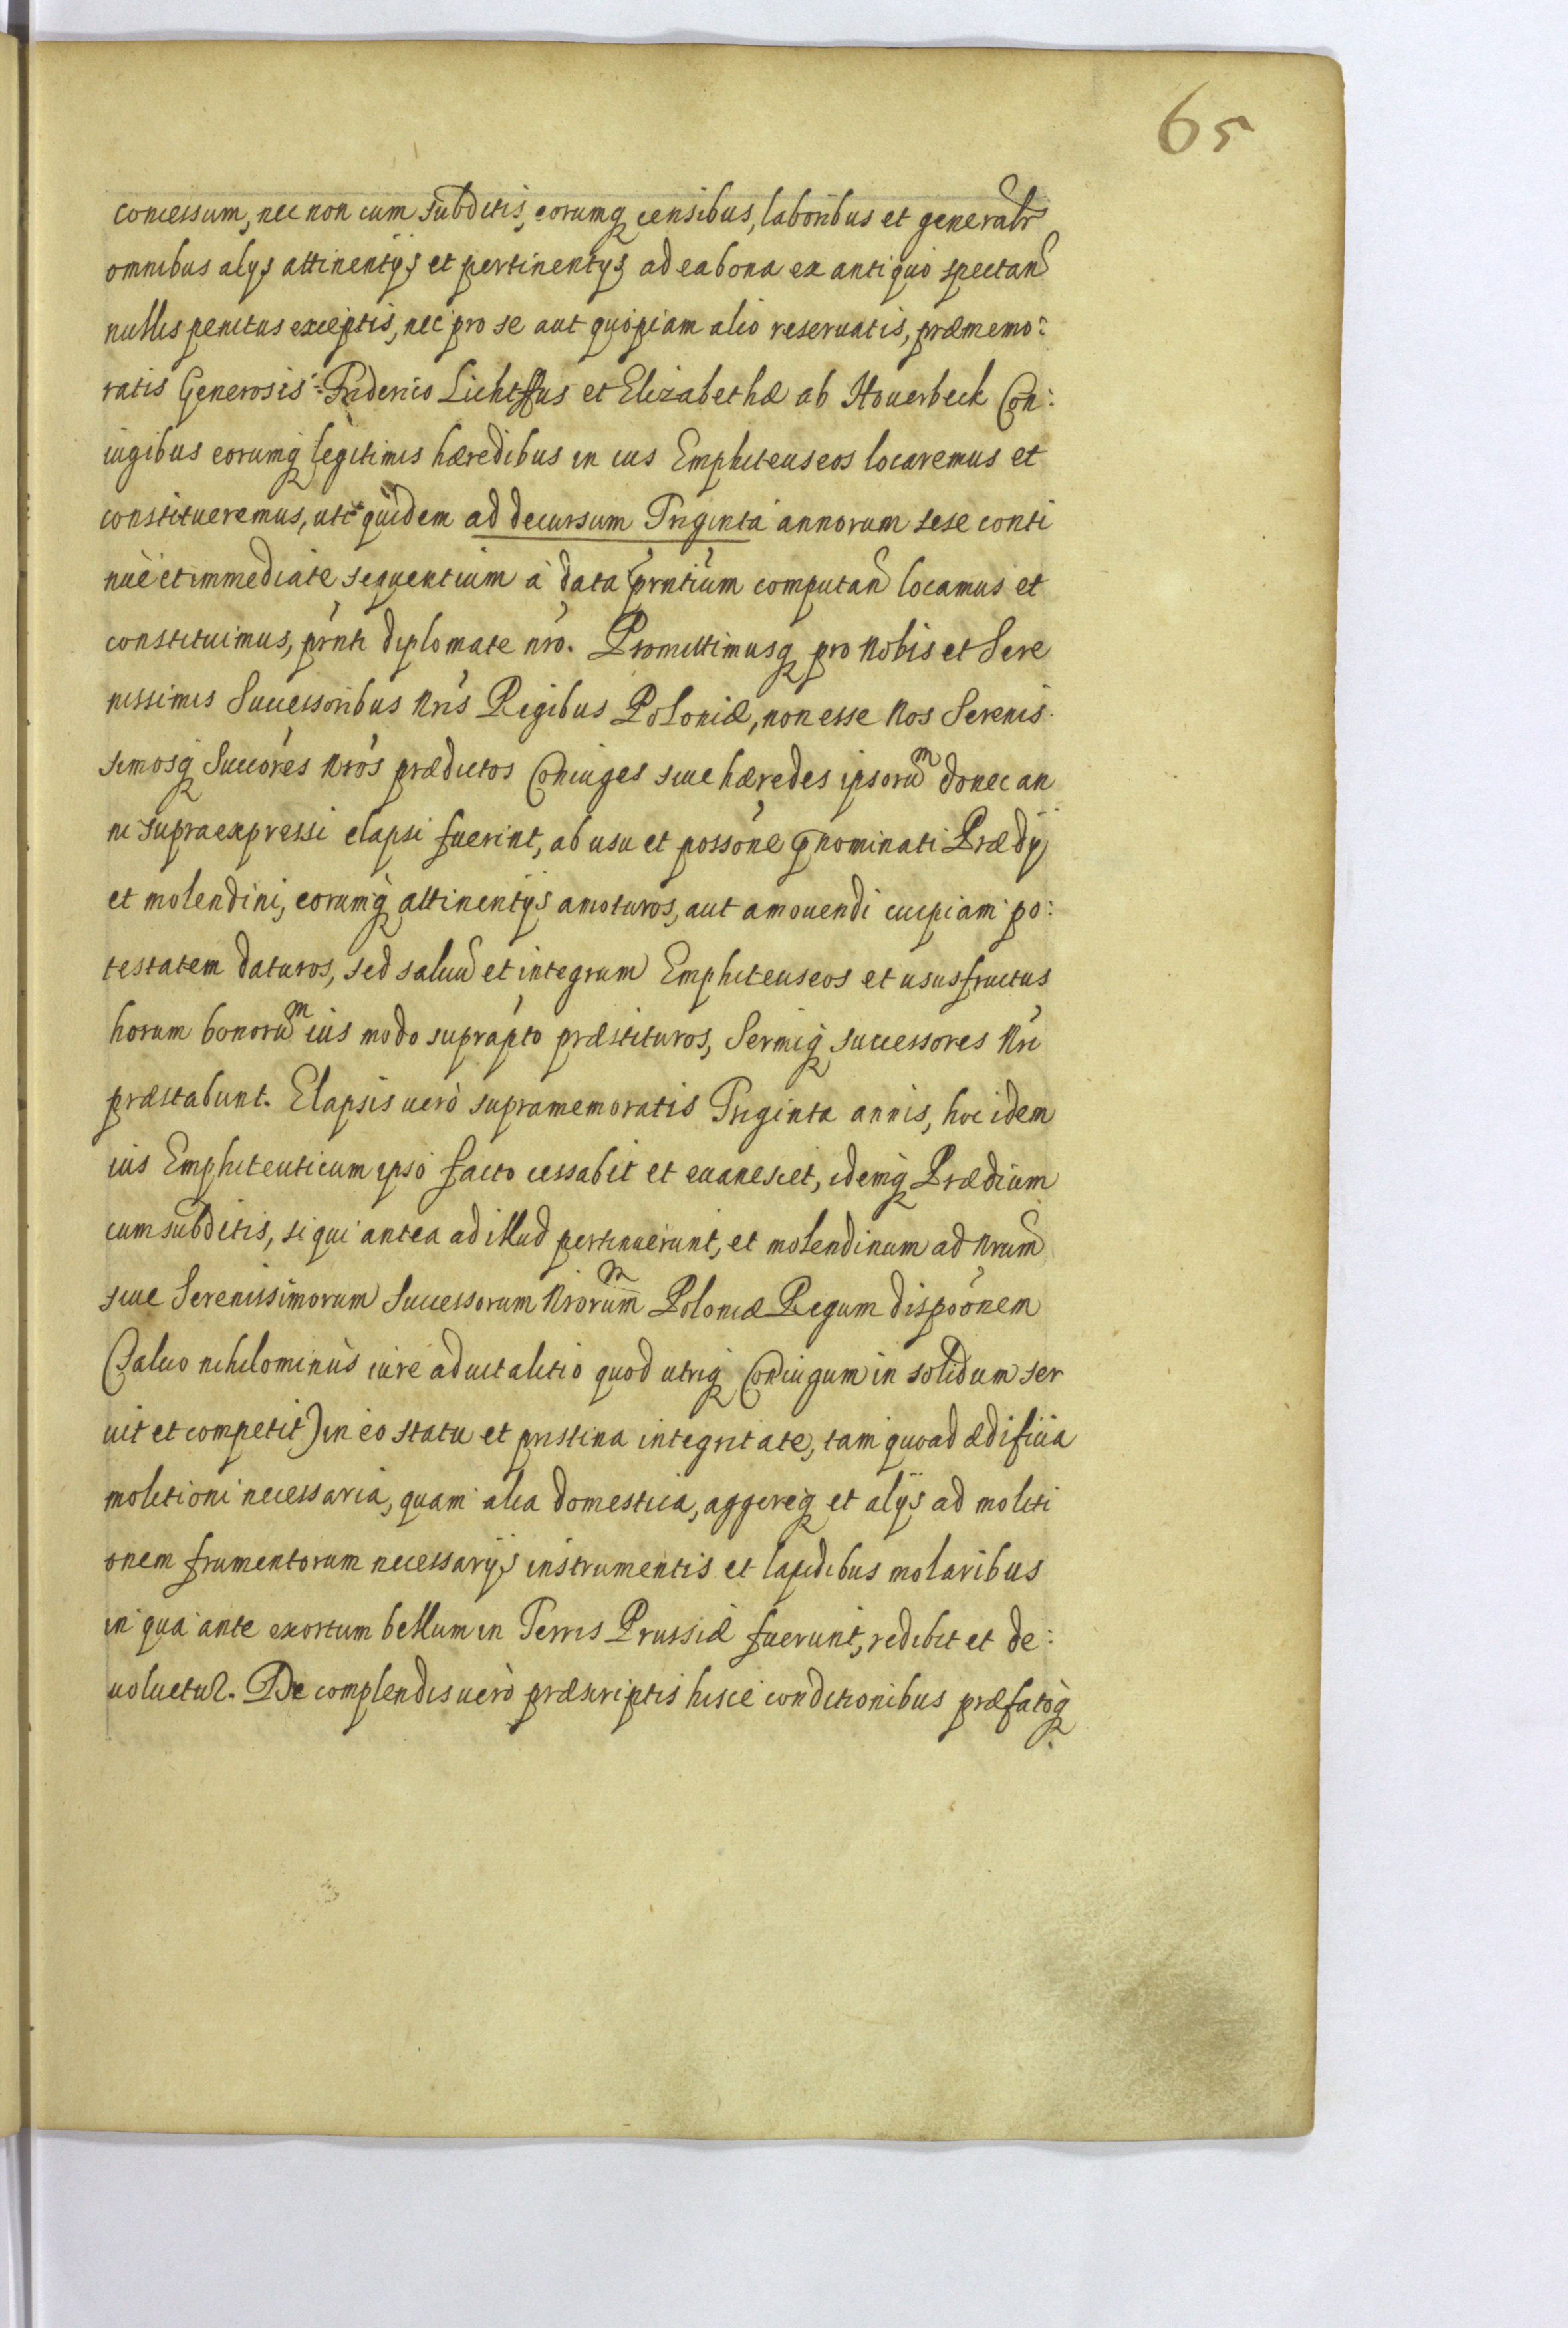 65
concessum, nec non cum subditis, eorumq censibus, laboribus et generalr
omnibus alijs attinentijs et pertinentijs ad ea bona ex antiquo spectan
nullis penitus exceptis, nec pro se aut quopiam alio reseruatis, præmemo:
ratis Generosis: Friderico et Elizabethæ ab Houerbeck Con:
iugibus eorumq legitimis hæredibus in ius Emphiteuseos locaremus et
constitueremus, uti quidem ad decursum Triginta annorum sese conti
nuè et immediate sequentium à data pntium computan locamus et
constituimus, prnti diplomate nro. Promittimusq pro Nobis et Sere
nissimis Successoribus Nris Regibus Poloniæ, non esse Nos Serenis
simosq Succores Nros prædictos Coniuges siue hæredes ipsorum donec an
ni supraexpressi elapsi fuerint, ab usu et possone prnominati Prædij
et molendini, eorumq attinentijs amoturos, aut amouendi cuipiam po:
testatem daturos, sed saluu et integrum Emphiteuseos et ususfructus
horum bonorum ius modo suprapto præstituros, Sermiq successores Nri
præstabunt. Elapsis uerò supramemoratis Triginta annis, hoc idem
ius Emphiteuticum ipso facto cessabit et euanescet, idemq Prædium
cum subditis, si qui antea ad illud pertinuerunt, et molendinum ad Nram
siue Serenissimorum Successorum Nrorum Poloniæ Regum dispoonem
(Saluo nihilominùs iure aduitalitio quod utriq Coniugum in solidum ser
uit et competit) in eo statu et pristina integritate, tam quoad ædificia
molitioni necessaria, quam alia domestica, aggereq et alijs ad moliti
onem frumentorum necessarijs instrumentis et lapidibus molaribus
in qua ante exortum bellum in Terris Prussiæ fuerunt, redibit et de:
uoluetur. De complendis uerò præscriptis hisce conditionibus præfatoq